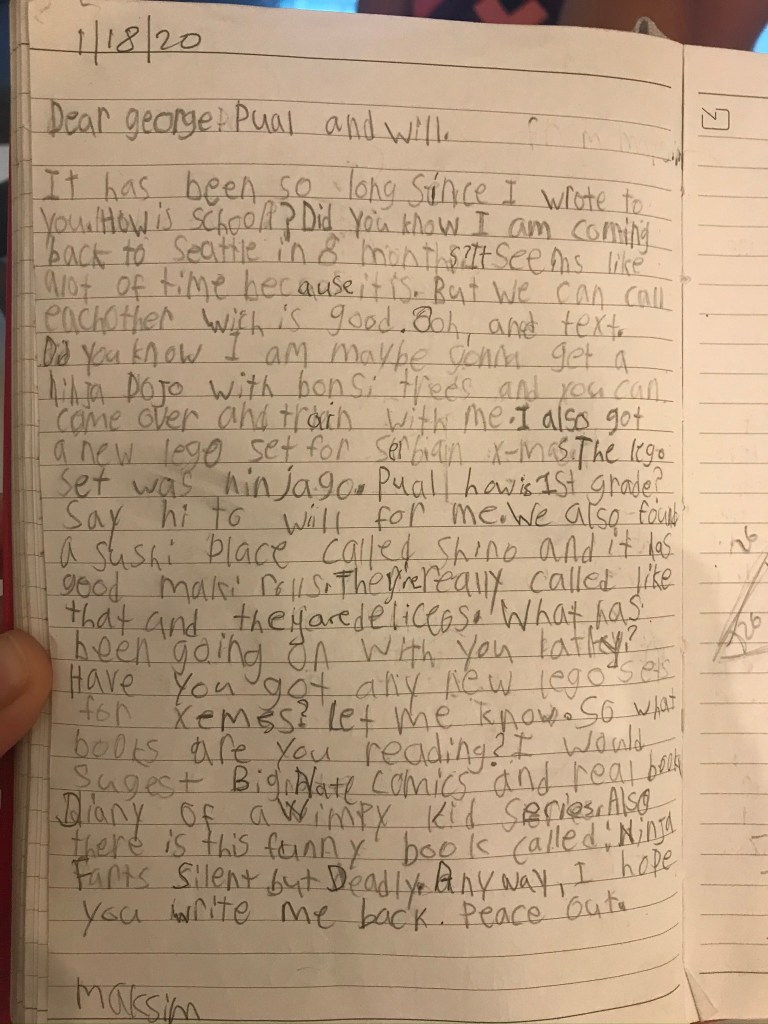 1/18/20
Dear george, Pual and will.
It has been so long since I wrote to
you. How is school? Did you know I am coming
back to Seattle in 8 months? It seems like
alot of time because it is. But we can call
eachother with is good. Ooh, and text.
Did you know I am maybe gonna get a
ninja Dojo with bonsi trees and you can
come over and train with me. I also got
a new lego set for serbian x-mas. The lego
set was ninjago. Pual how is 1st grade?
Say hi to will for me. We also found
a sushi place called shino and it has
good maki rolls. They're really called like
that and they are deliceos. What has
been going on with you
Have you got any new lego sets
for xemes? Let me know. So what
books are you reading? I would
sugest Big Nate comics and real book
Diany of a Wimpy Kid series. Also
there is this funny book called: Ninja
Farts Silent but Deadly. Any way, I hope
you write me back. Peace out.
maksim
26
26